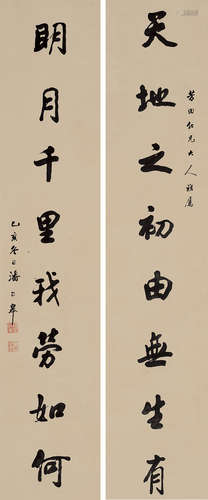 天地之初由無生有
芳田仁兄大人雅鑒
明月千里我勞如何
乙亥冬日潘二皋